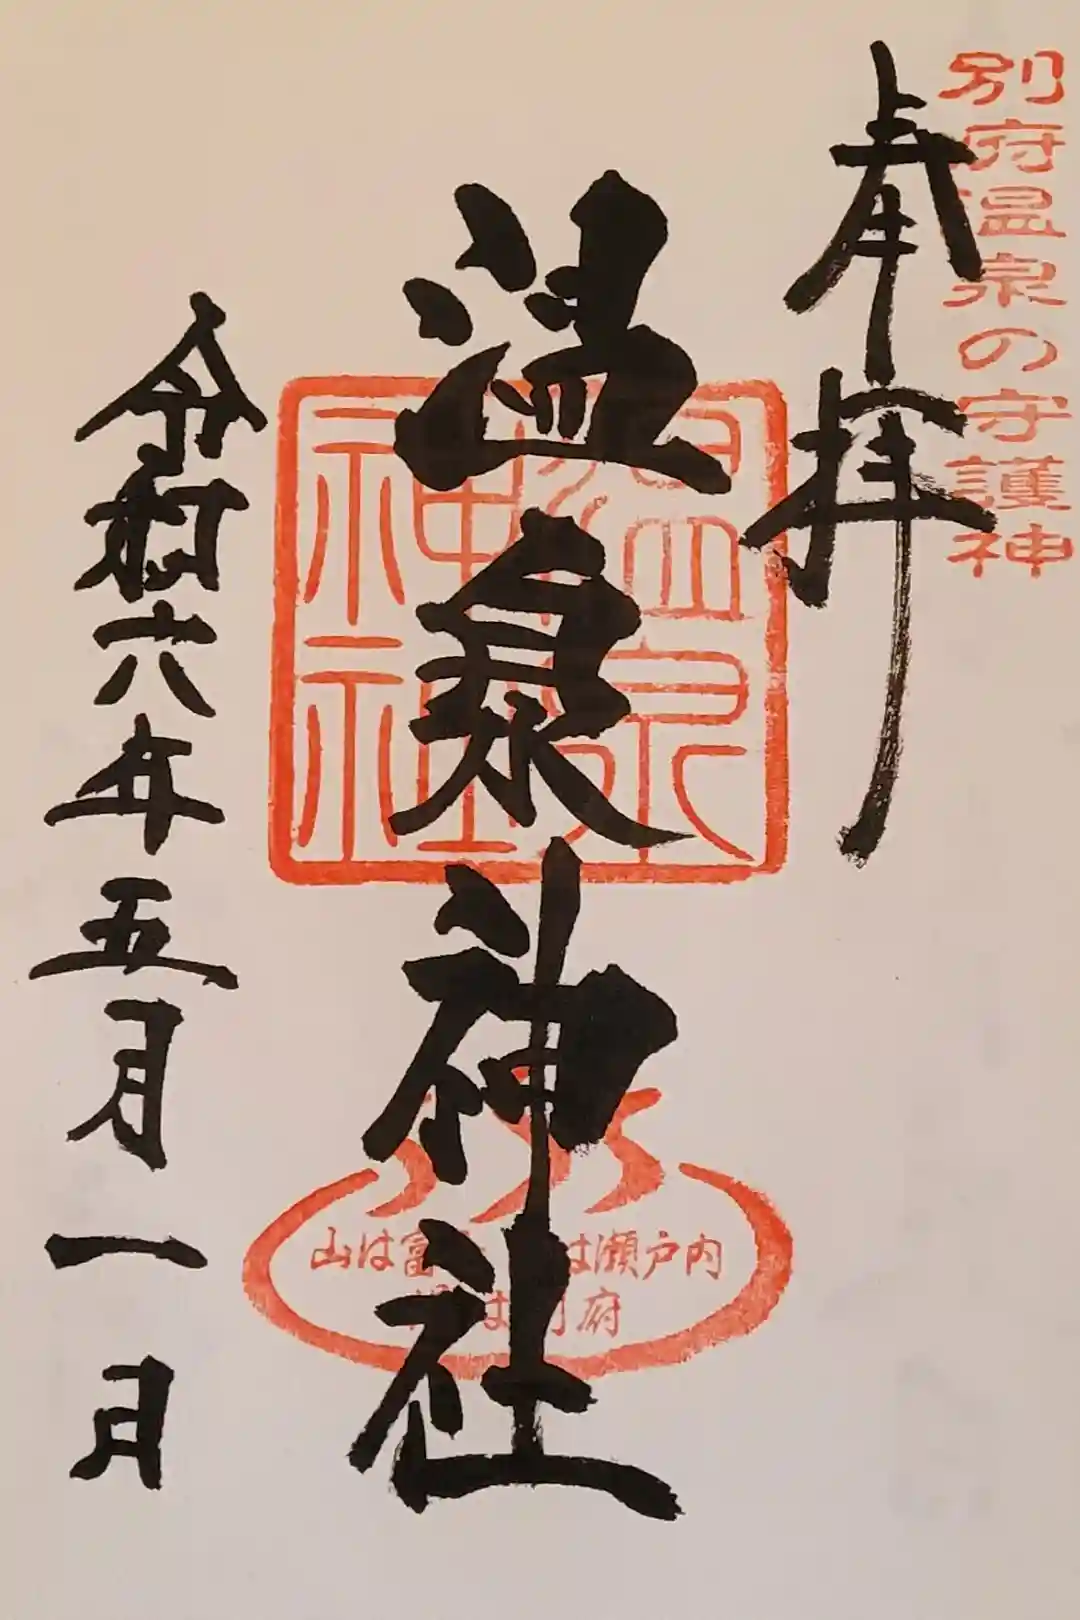 別府温泉の守護神
奉拝
温泉神社
温泉
神社
山は富 は瀬戸内
は 府
令和六年五月一日